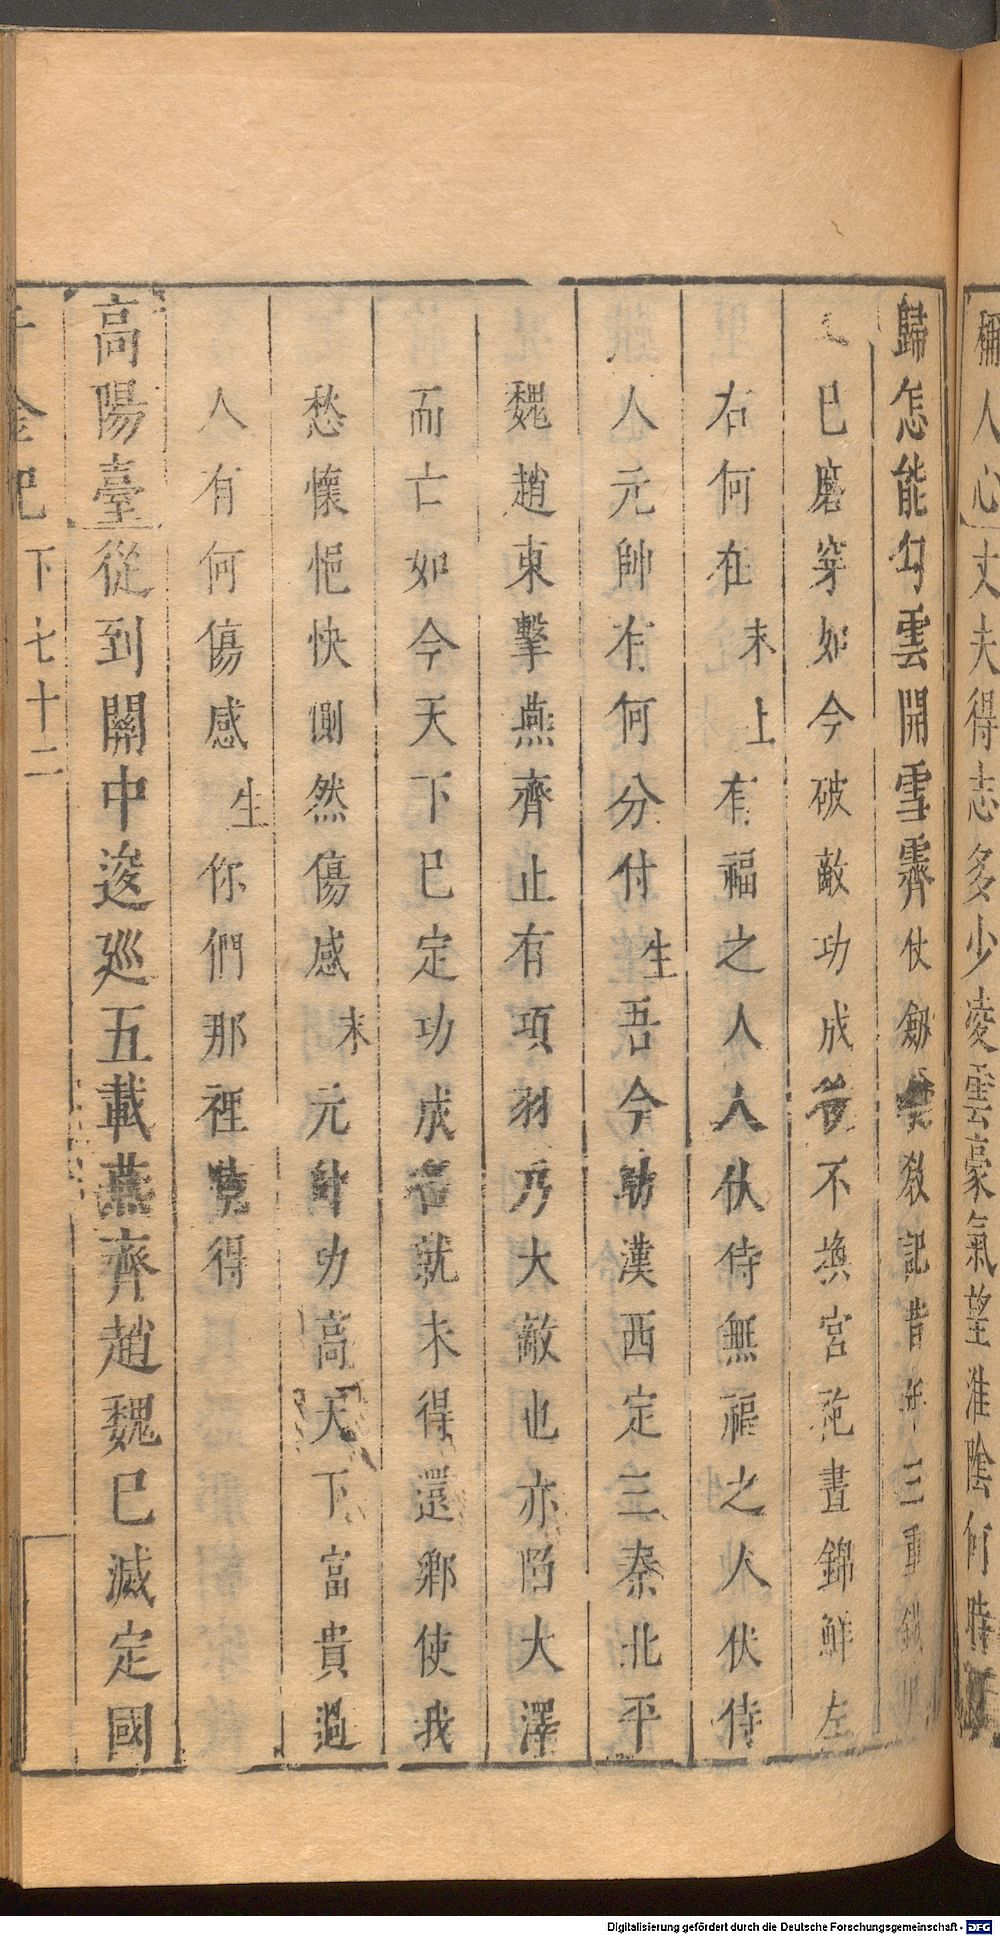 禰人心丈夫得志多少凌雲豪氣望淮陰何時
歸怎能勾雲開雪霽仗劔敎記昔年三重鐵
巳磨穿如今破敵功成後不換宮袍晝錦鮮左
右何在末上有福之人人伏侍無福之人伏侍
人元帥有何分付生吾今助漢西定三秦北平
魏趙東擊燕齊止有項羽乃大敵也亦陷大澤
而亡如今天下巳定功成名就未得還鄉使我
愁懷悒怏惻然傷感末元帥功高天下富貴過
人有何傷感生你們那裡曉得
高陽臺從到關中逡廵五載燕齊趙魏巳滅定國
千金記 下七十二
Digitalisierung gefördert durch die Deutsche Forschungsgemeinschaft - DFG